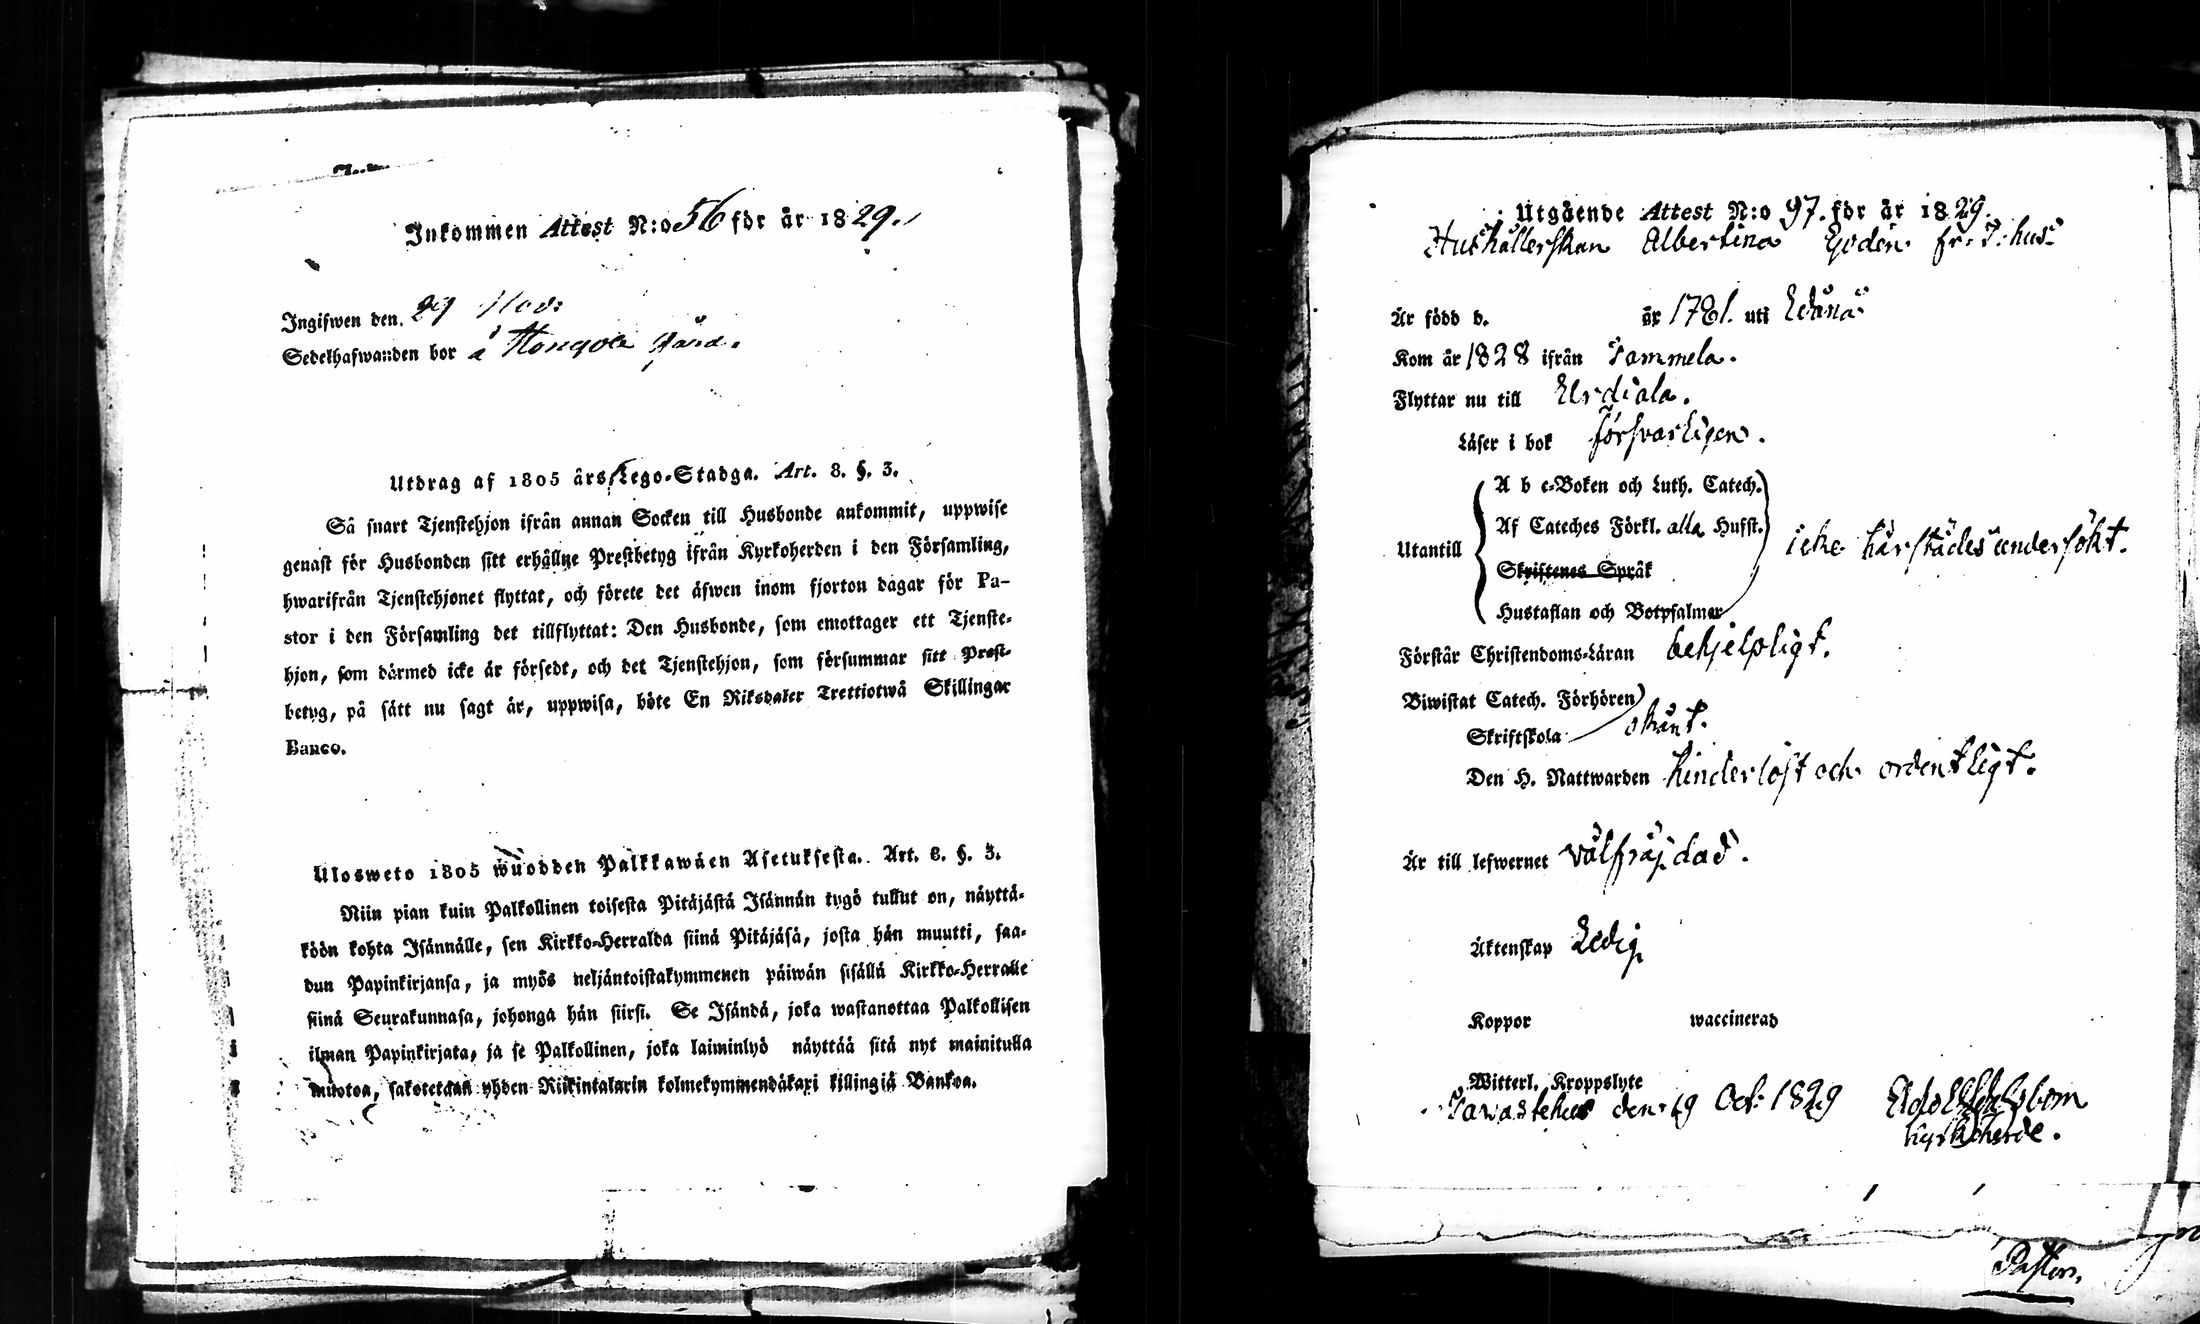 Inkommen Attest N:o 56 för år 1829.
Ingifwen den 29 Nov:
Sedelhafwanden bor å Hongola gård.
Utdrag af 1805 års Lego-Stadga. Art. 8. §. 3.
Så snart Tjenstehjon ifrån annan Socken till Husbonde ankommit, uppwise
genast för Husbonden sitt erhållne Prestbetyg ifrån Kyrkoherden i den Församling,
hwarifrån Tjenstehjonet flyttat, och förete det äfwen inom fjorton dagar för Pa-
stor i den Församling det tillflyttat: Den Husbonde, som emottager ett Tjenste-
hjon, som därmed icke är försedt, och det Tjenstehjon, som försummar sitt Prest-
betyg, på sätt nu sagt är, uppwisa, böte En Riksdaler Trettiotwå Skillingar
Banco.
Ulosweto 1805 wuodden Palkkawäen Asetuksesta. Art. 8. §. 3.
Niin pian kuin Palkollinen toisesta Pitäjästä Isännän tygö tullut on, näyttä-
köön kohta Isännälle, sen Kirkko-Herralda siinä Pitäjäsä, josta hän muutti, saa-
dun Papinkirjansa, ja myös neljäntoistakymmenen päiwän sisällä Kirkko-Herralle
siinä Seurakunnasa, johonga hän siirsi. Se Isändä, joka wastanottaa Palkollisen
ilman Papinkirjata, ja se Palkollinen, joka laiminlyö näyttää sitä nyt mainitulla
muotoa, sakotetaan yhden Riikintalarin kolmekymmendäkaxi killingiä Bankoa.
Utgående Attest N:o 97. för år 1829.
Hushållerskan Albertina Godén. fr. T:hus
Är född d. år 1781. uti
Kom år 1828 ifrån Tammela.
Flyttar nu till Urdiala.
Läser i bok försvarligen.
A b c-Boken och Luth. Catech.
Af Cateches Förkl. alla Hufst.
Utantill icke härstädes undersökt.
Skriftenes Språk
Hustaflan och Botpsalmer
Förstår Christendoms-Läran behjelpligt.
Biwistat Catech. Förhören
Skriftskola okänt.
Den H. Nattwarden hinderlöst och ordentligt.
Är till lefwernet välfräjdad.
Äktenskap Ledig
Koppor waccinerad
Witterl. Kroppslyte
Tavastehus den 19 Oct: 1829
Kyrkoherde.
Pastor.